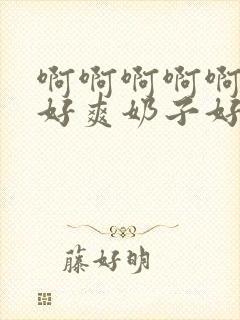 啊啊啊啊啊
好爽奶子好
藤好明